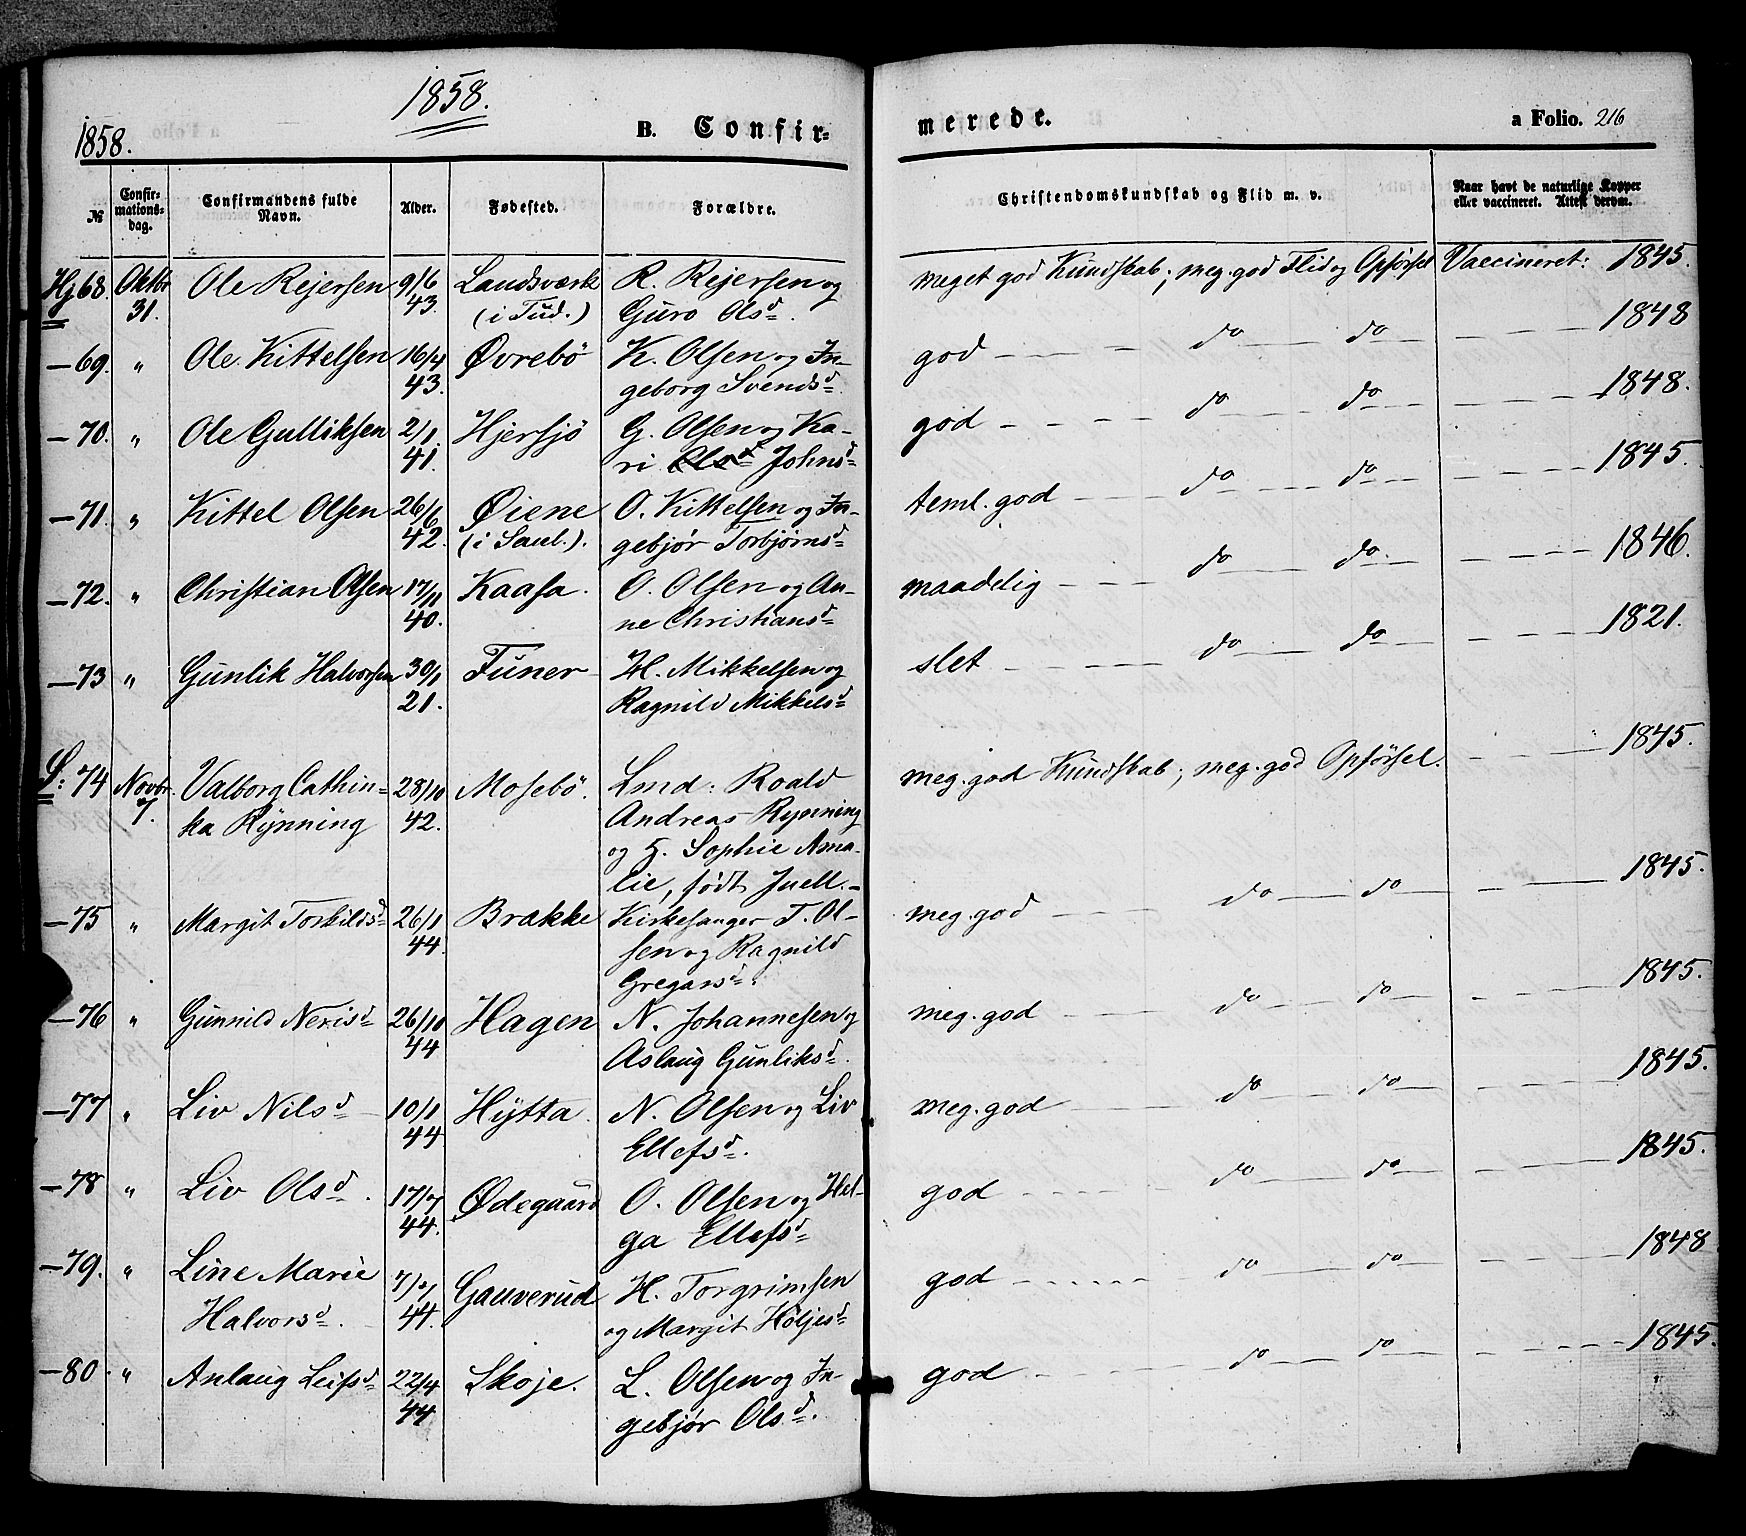 1858.
1858.
B. Confir-
merede.
a Folio. 216
№
Confir-
mations-
dag.
Confirmandens fulde
Navn.
Alder.
Fødested.
Forældre.
Christendomskundskab og Flid m. v.
Naar havt de naturlige Kopper
eller vaccineret. Attest derom.
Hj 68. Oktbr Ole Rejersen 9/6 Landsværk R. Rejersen og meget god Kundskab; meg. god Flid og Opførsel Vaccineret: 1845.
31. 43. (i Tud.) Guro Olsd.
—69. " Ole Kittelsen 16/4 Øvrebö K. Olsen og In- god do do 1848
43. geborg Svendsd.
—70. " Ole Gulliksen 2/1 Hjersjö G. Olsen og Ka- god do do 1848.
41. ri Olsd Johnsd
—71. " Kittel Olsen 26/6 Øiene O. Kittelsen og In- teml. god do do 1845.
42. (i Saul.). gebjør Torbjørnsd
—72. " Christian Olsen 17/11 Kaasa. O. Olsen og An- maadelig do do 1846.
40. ne Christiansd
—73 " Gunlik Halvorsen 30/1 Funer H. Mikkelsen og slet do do 1821.
21. Ragnild Mikkelsd
S: 74 Novbr. Valborg Cathin- 28/10 Mosebö. Lmd: Roald meg. god Kundskab; meg. god Opførsel. 1845.
7. ka Rynning 42. Andreas Rynning
og H. Sophie Ama-
lie, født Juell.
—75 " Margit Torkildsd 26/1 Brakke Kirkesanger T. Ol- meg. god do do 1845.
44. sen og Ragnild
Gregarsd.
—76 " Gunnild Nerisd 26/10 Hagen N. Johannesen og meg. god do do 1845.
44 Aslaug Gunliksd.
—77 " Liv Nilsd 10/1 Hytta. N. Olsen og Liv meg. god do do 1845.
44 Ellefsd.
—78 " Liv Olsd. 17/7 Ødegaard O. Olsen og Hel- god do do 1845.
44. ga Ellefsd
—79. " Line Marie 7/7 Gauverud H. Torgrimsen god do do 1848
Halvorsd. 44. og Margit Höljesd
—80. " Anlaug Leifsd 22/4 Skoje. L. Olsen og In- god do do 1845.
44 gebjør Olsd.